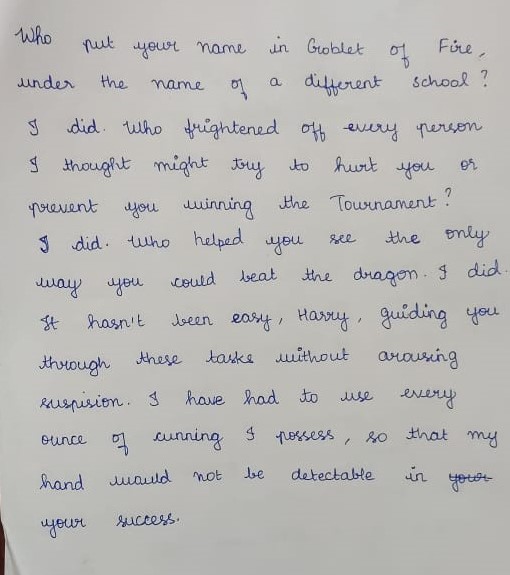 Who put your name in Goblet of Fire,
under the name of a different school?
I did. Who frightened off every person
I thought might try to hurt you or
prevent you winning the Tournament?
I did. Who helped you see the only
way you could beat the dragon. I did.
It hasn't been easy, Harry, guiding you
through these tasks without arousing
suspision. I have had to use every
ounce of cunning I possess, so that my
hand would not be detectable in your
your success.